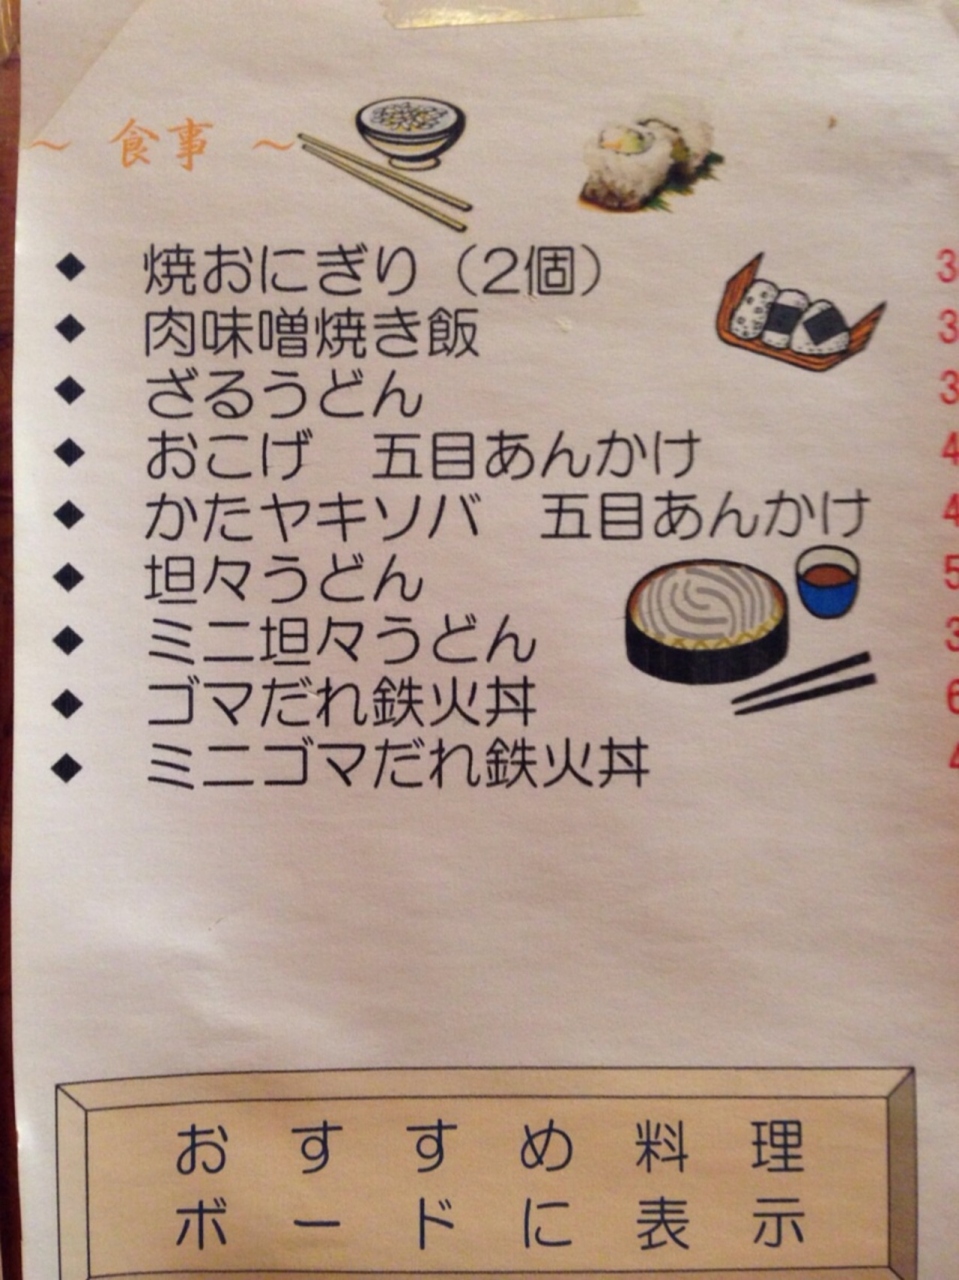 ～ 食事 ～
◆ 焼おにぎり（2個） 3
◆ 肉味噌焼き飯 3
◆ ざるうどん 3
◆ おこげ　五目あんかけ 4
◆ かたヤキソバ　五目あんかけ 4
◆ 坦々うどん 5
◆ ミニ坦々うどん 3
◆ ゴマだれ鉄火丼 6
◆ ミニゴマだれ鉄火丼 4
おすすめ料理
ボードに表示